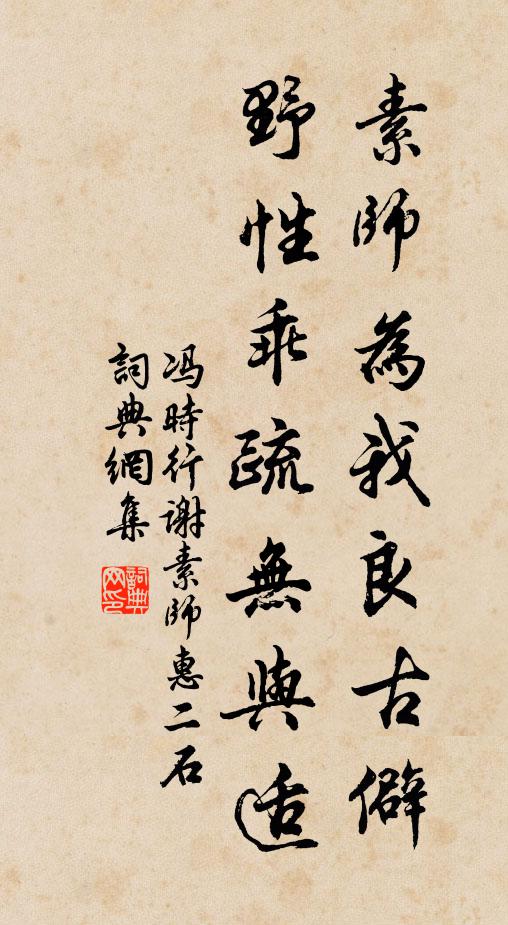 素師為我良古僻
野性乖疏無與适
冯時行谢素師惠二石
詞典網集
詞典網印